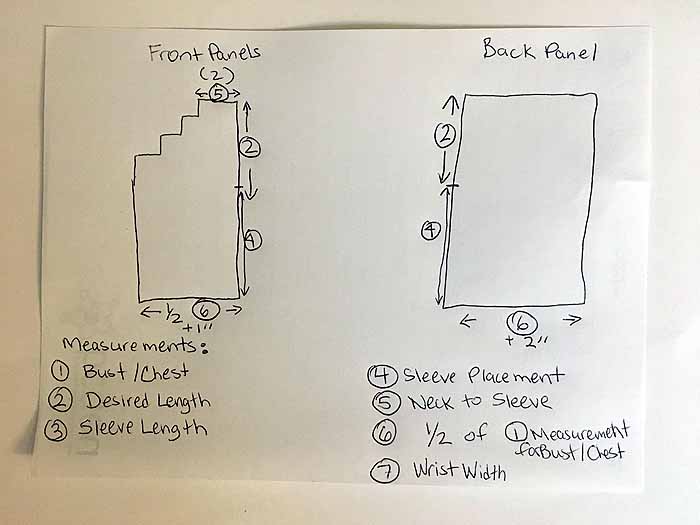 Front Panels
(2)
5
2
4
1/2 6
+1"
Back Panel
2
4
6
+ 2"
Measurements:
1 Bust/Chest
2 Desired Length
3 Sleeve Length
4 Sleeve Placement
5 Neck to Sleeve
6 1/2 of 1 Measurement
for Bust/Chest
7 Wrist Width